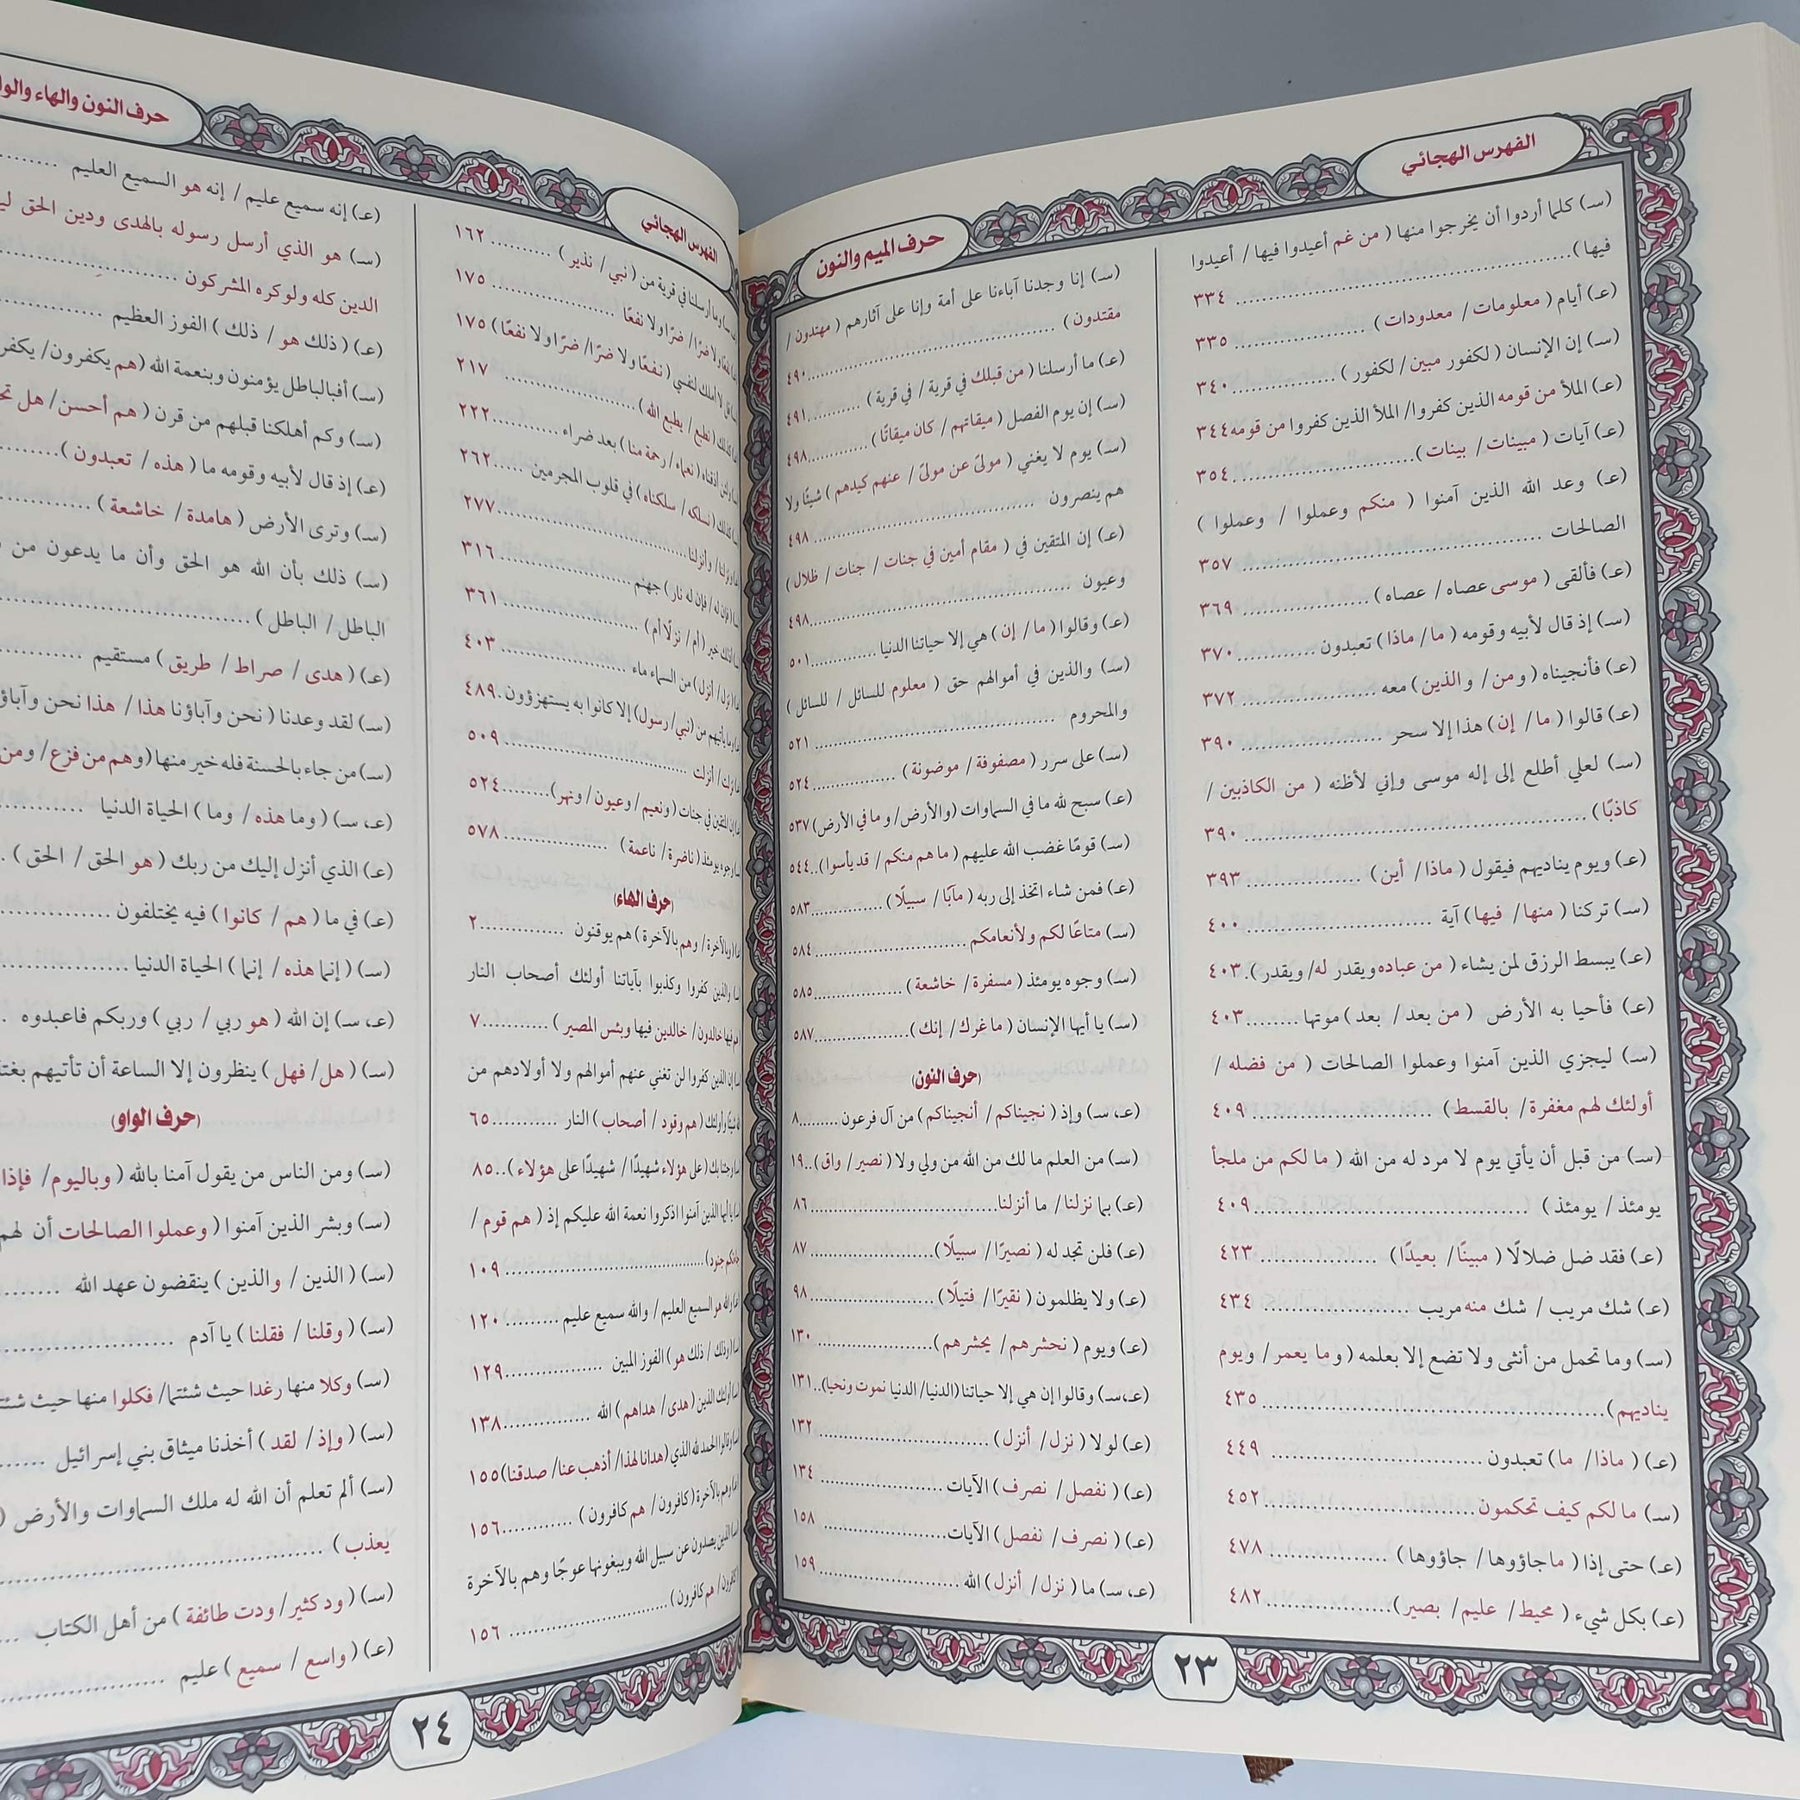 الفهرس الهجائي
(سـ) كلما أردوا أن يخرجوا منها ( من غم أعيدوا فيها / أعيدوا
فيها ) ............ ٣٣٤
(عـ) أيام ( معلومات / معدودات ) ............ ٣٣٥
(سـ) إن الإنسان ( لكفور مبين / لكفور ) ............ ٣٤٠
(عـ) الملأ من قومه الذين كفروا / الملأ الذين كفروا من قومه ٣٤٤
(عـ) آيات ( مبينات / بينات ) ............ ٣٥٤
(عـ) وعد الله الذين آمنوا ( منكم وعملوا / وعملوا )
الصالحات ............ ٣٥٧
(عـ) فألقى ( موسى عصاه / عصاه ) ............ ٣٦٩
(سـ) إذ قال لأبيه وقومه ( ما / ماذا ) تعبدون ............ ٣٧٠
(عـ) فأنجيناه ( ومن / والذين ) معه ............ ٣٧٢
(عـ) قالوا ( ما / إن ) هذا إلا سحر ............ ٣٩٠
(سـ) لعلي أطلع إلى إله موسى وإني لأظنه ( من الكاذبين /
كاذبًا ) ............ ٣٩٠
(عـ) ويوم يناديهم فيقول ( ماذا / أين ) ............ ٣٩٣
(سـ) تركنا ( منها / فيها ) آية ............ ٤٠٠
(عـ) يبسط الرزق لمن يشاء ( من عباده ويقدر له / ويقدر ). ٤٠٣
(عـ) فأحيا به الأرض ( من بعد / بعد ) موتها ........ ٤٠٣
(سـ) ليجزي الذين آمنوا وعملوا الصالحات ( من فضله /
أولئك لهم مغفرة / بالقسط ) ............ ٤٠٩
(سـ) من قبل أن يأتي يوم لا مرد له من الله ( ما لكم من ملجأ
يومئذ / يومئذ ) ............ ٤٠٩
(عـ) فقد ضل ضلالًا ( مبينًا / بعيدًا ) ............ ٤٢٣
(عـ) شك مريب / شك منه مريب ............ ٤٣٤
(سـ) وما تحمل من أنثى ولا تضع إلا بعلمه ( وما يعمر / ويوم
يناديهم ) ............ ٤٣٥
(عـ) ( ماذا / ما ) تعبدون ............ ٤٤٩
(سـ) ما لكم كيف تحكمون ............ ٤٥٢
(عـ) حتى إذا ( ما جاؤوها / جاؤوها ) ............ ٤٧٨
(عـ) بكل شيء ( محيط / عليم / بصير ) ............ ٤٨٢
حرف الميم والنون
(سـ) إنا وجدنا آباءنا على أمة وإنا على آثارهم ( مهتدون /
مقتدون ) ............ ٤٩٠
(عـ) ما أرسلنا ( من قبلك في قرية / في قرية ) ............ ٤٩١
(سـ) إن يوم الفصل ( ميقاتهم / كان ميقاتًا ) ............ ٤٩٨
(سـ) يوم لا يغني ( مولىً عن مولىً / عنهم كيدهم ) شيئًا ولا
هم ينصرون ............ ٤٩٨
(عـ) إن المتقين في ( مقام أمين في جنات / جنات / ظلال )
وعيون ............ ٤٩٨
(عـ) وقالوا ( ما / إن ) هي إلا حياتنا الدنيا ............ ٥٠١
(سـ) والذين في أموالهم حق ( معلوم للسائل / للسائل )
والمحروم ............ ٥٢١
(سـ) على سرر ( مصفوفة / موضونة ) ............ ٥٢٤
(عـ) سبح لله ما في السماوات ( والأرض / وما في الأرض ) ٥٣٧
(سـ) قومًا غضب الله عليهم ( ما هم منكم / قد يأسوا ) .. ٥٤٤
(عـ) فمن شاء اتخذ إلى ربه ( مآبًا / سبيلًا ) ............ ٥٨٣
(سـ) متاعًا لكم ولأنعامكم ............ ٥٨٤
(سـ) وجوه يومئذ ( مسفرة / خاشعة ) ............ ٥٨٥
(سـ) يا أيها الإنسان ( ما غرك / إنك ) ............ ٥٨٧
(حرف النون)
(عـ، سـ) وإذ ( نجيناكم / أنجيناكم ) من آل فرعون ......... ٨
(سـ) من العلم ما لك من الله من ولي ولا ( نصير / واق ) .. ١٩
(عـ) بما نزلنا / ما أنزلنا ............ ٨٦
(عـ) فلن تجد له ( نصيرًا / سبيلًا ) ............ ٨٧
(عـ) ولا يظلمون ( نقيرًا / فتيلًا ) ............ ٩٨
(عـ) ويوم ( نحشرهم / يحشرهم ) ............ ١٣٠
(عـ، سـ) وقالوا إن هي إلا حياتنا ( الدنيا / الدنيا نموت ونحيا ) .. ١٣١
(عـ) لولا ( نزل / أنزل ) ............ ١٣٢
(عـ) ( نفصل / نصرف ) الآيات ............ ١٣٤
(عـ) ( نصرف / نفصل ) الآيات ............ ١٥٨
(عـ، سـ) ما ( نزل / أنزل ) الله ............ ١٥٩
٢٣
الفهرس الهجائي
وما أرسلنا في قرية من ( نبي / نذير ) ......... ١٦٢
ولا ضرًا / ضرًا ولا نفعًا ............ ١٧٥
قل لا أملك لنفسي ( نفعًا ولا ضرًا / ضرًا ولا نفعًا ) ١٧٥
كذلك ( نطبع / يطبع الله ) ............ ٢١٧
ولئن أذقناه ( نعماء / رحمة منا ) بعد ضراء ............ ٢٢٢
كذلك ( نسلكه / سلكناه ) في قلوب المجرمين ...... ٢٦٢
وأنزلنا ............ ٢٧٧
( فإن له نار ) جهنم ............ ٣١٦
أذلك خير ( أم / نزلًا أم ) ............ ٣٦١
( نزل / أنزل ) من السماء ماء ............ ٤٠٣
وما يأتيهم من ( نبي / رسول ) إلا كانوا به يستهزؤون . ٤٨٩
نزلت / أنزلت ............ ٥٠٩
إن المتقين في جنات ( ونعيم / وعيون / ونهر ) ......... ٥٢٤
وجوه يومئذ ( ناضرة / ناعمة ) ............ ٥٧٨
(حرف الهاء)
( وبالآخرة / وهم بالآخرة ) هم يوقنون ............ ٢
والذين كفروا وكذبوا بآياتنا أولئك أصحاب النار
هم فيها خالدون / خالدين فيها وبئس المصير ) ............ ٧
إن الذين كفروا لن تغني عنهم أموالهم ولا أولادهم من
وأولئك ( هم وقود / أصحاب ) النار ............ ٦٥
وجئنا بك ( على هؤلاء شهيدًا / شهيدًا على هؤلاء ) .. ٨٥
يا أيها الذين آمنوا اذكروا نعمة الله عليكم إذ ( هم قوم /
جاءتكم جنود ) ............ ١٠٩
والله هو السميع العليم / والله سميع عليم ............ ١٢٠
( وذلك / ذلك هو ) الفوز المبين ............ ١٢٩
أولئك الذين ( هدى / هداهم ) الله ............ ١٣٨
وقالوا الحمد لله الذي ( هدانا لهذا / أذهب عنا / صدقنا ) ١٥٥
وهم بالآخرة ( كافرون / هم كافرون ) ............ ١٥٦
الذين يصدون عن سبيل الله ويبغونها عوجًا وهم بالآخرة
كافرون / هم كافرون ) ............ ١٥٦
حرف النون والهاء
(عـ) إنه سميع عليم / إنه هو السميع العليم ............
(سـ) هو الذي أرسل رسوله بالهدى ودين الحق
الدين كله ولو كره المشركون ............
(عـ) ( ذلك هو / ذلك ) الفوز العظيم ............
(سـ) أفبالباطل يؤمنون وبنعمة الله ( هم يكفرون /
(سـ) وكم أهلكنا قبلهم من قرن ( هم أحسن / هل
(عـ) إذ قال لأبيه وقومه ما ( هذه / تعبدون ) ............
(سـ) وترى الأرض ( هامدة / خاشعة ) ............
(سـ) ذلك بأن الله هو الحق وأن ما يدعون من
الباطل / الباطل ) ............
(عـ) ( هدى / صراط / طريق ) مستقيم ............
(سـ) لقد وعدنا ( نحن وآباؤنا هذا / هذا نحن
(سـ) من جاء بالحسنة فله خير منها ( وهم من فزع / ومن
(عـ، سـ) ( وما هذه / وما ) الحياة الدنيا ............
(عـ) الذي أنزل إليك من ربك ( هو الحق / الحق ) .
(عـ) في ما ( هم / كانوا ) فيه يختلفون ............
(سـ) ( إنما هذه / إنما ) الحياة الدنيا ............
(عـ، سـ) إن الله ( هو ربي / ربي ) وربكم فاعبدوه .
(سـ) ( هل / فهل ) ينظرون إلا الساعة أن تأتيهم
(حرف الواو)
(سـ) ومن الناس من يقول آمنا بالله ( وباليوم /
(سـ) وبشر الذين آمنوا ( وعملوا الصالحات أن لهم
(سـ) ( الذين / والذين ) ينقضون عهد الله ............
(سـ) ( وقلنا / فقلنا ) يا آدم ............
(سـ) وكلا منها رغدا حيث شئتما / فكلوا منها حيث
(سـ) ( وإذ / لقد ) أخذنا ميثاق بني إسرائيل ......
(سـ) ألم تعلم أن الله له ملك السماوات والأرض (
يعذب ) ............
(سـ) ( ود كثير / ودت طائفة ) من أهل الكتاب ...
(عـ) ( واسع / سميع ) عليم ............
٢٤